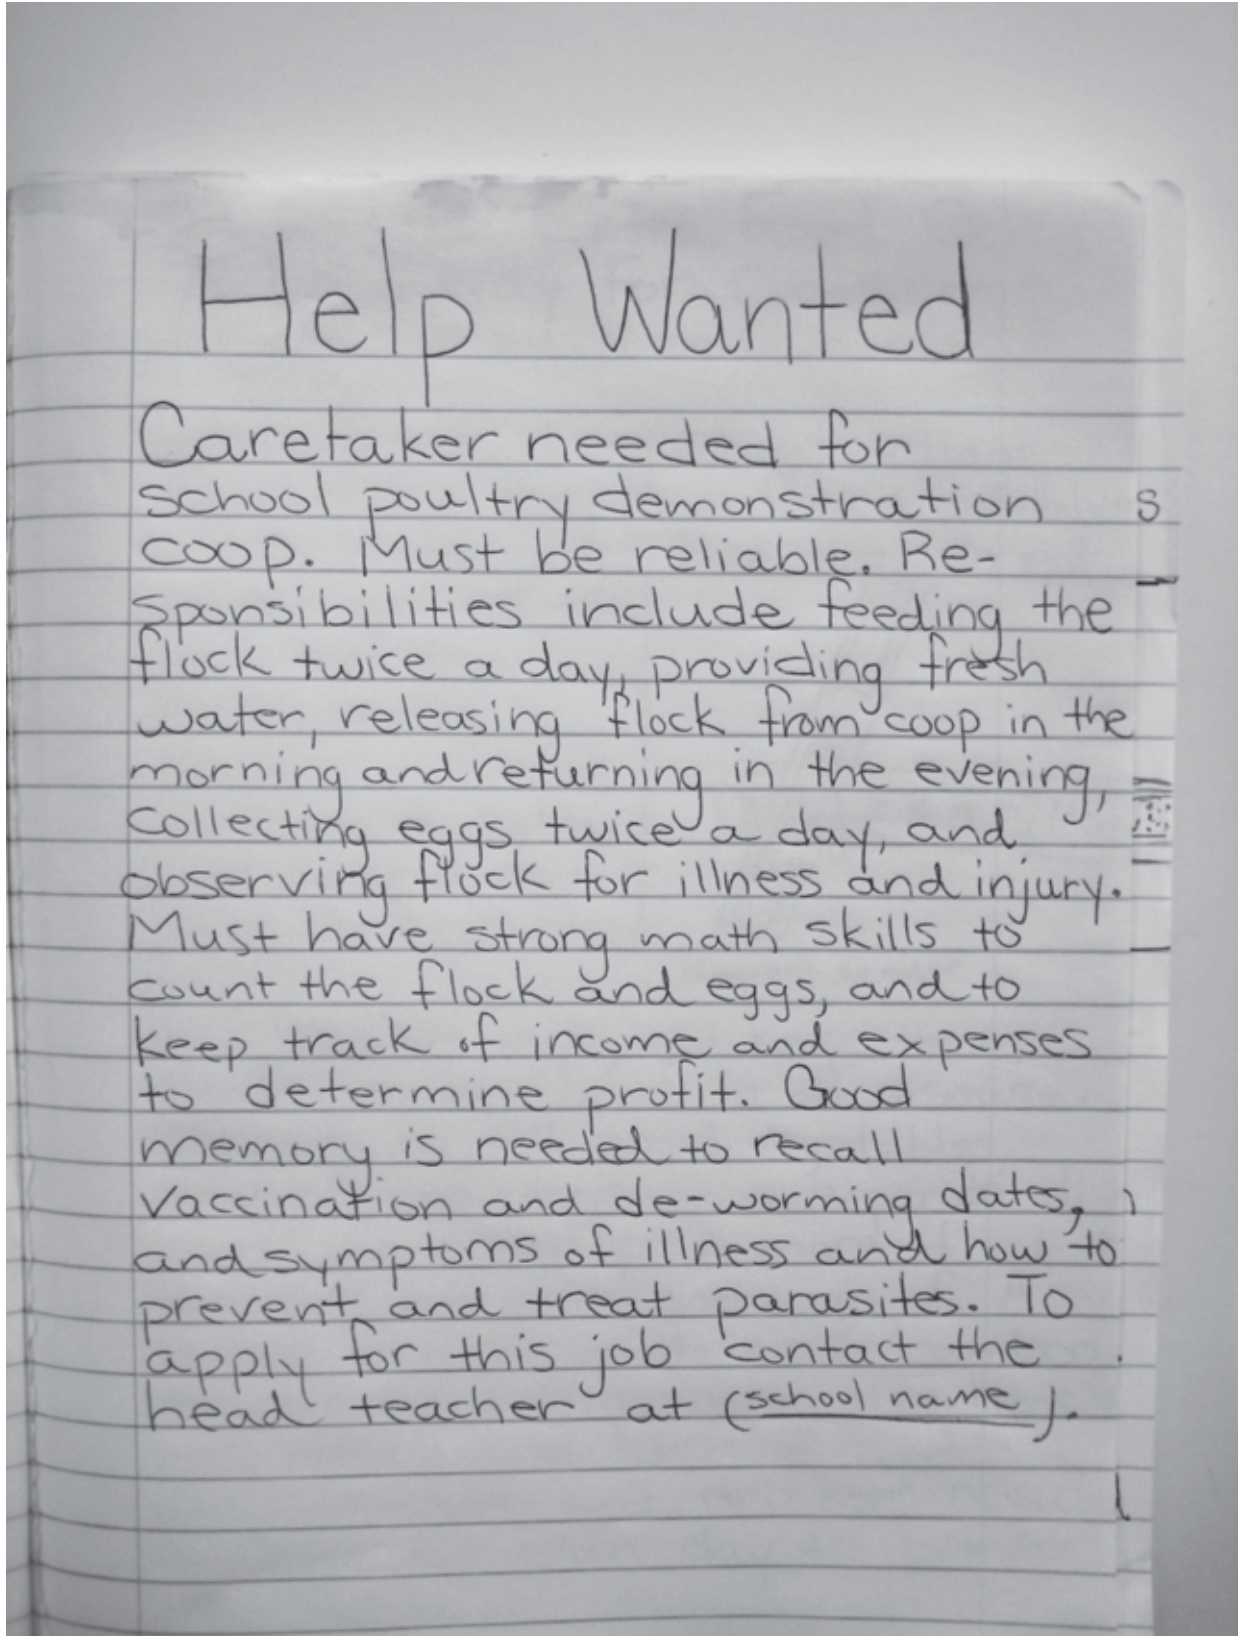 Help Wanted
Caretaker needed for
school poultry demonstration
coop. Must be reliable. Re-
sponsibilities include feeding the
flock twice a day, providing fresh
water, releasing flock from coop in the
morning and returning in the evening,
collecting eggs twice a day, and
observing flock for illness and injury.
Must have strong math skills to
count the flock and eggs, and to
keep track of income and expenses
to determine profit. Good
memory is needed to recall
vaccination and de-worming dates,
and symptoms of illness and how to
prevent and treat parasites. To
apply for this job contact the
head teacher at (school name).